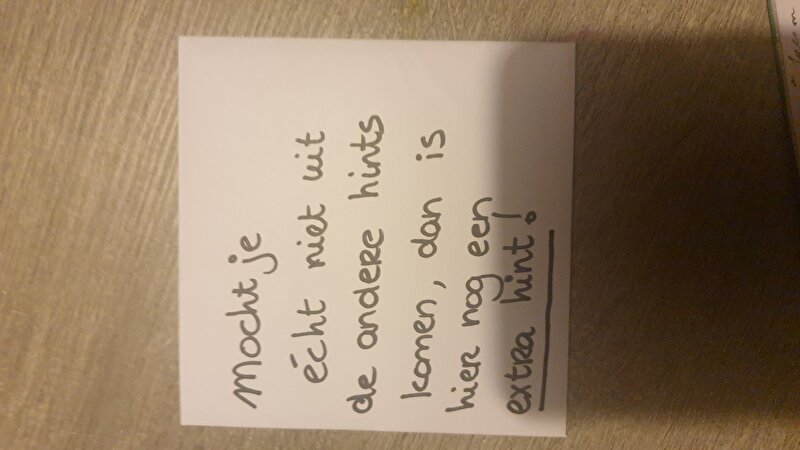 Mocht je
écht niet uit
de andere hints
komen, dan is
hier nog een
extra hint!